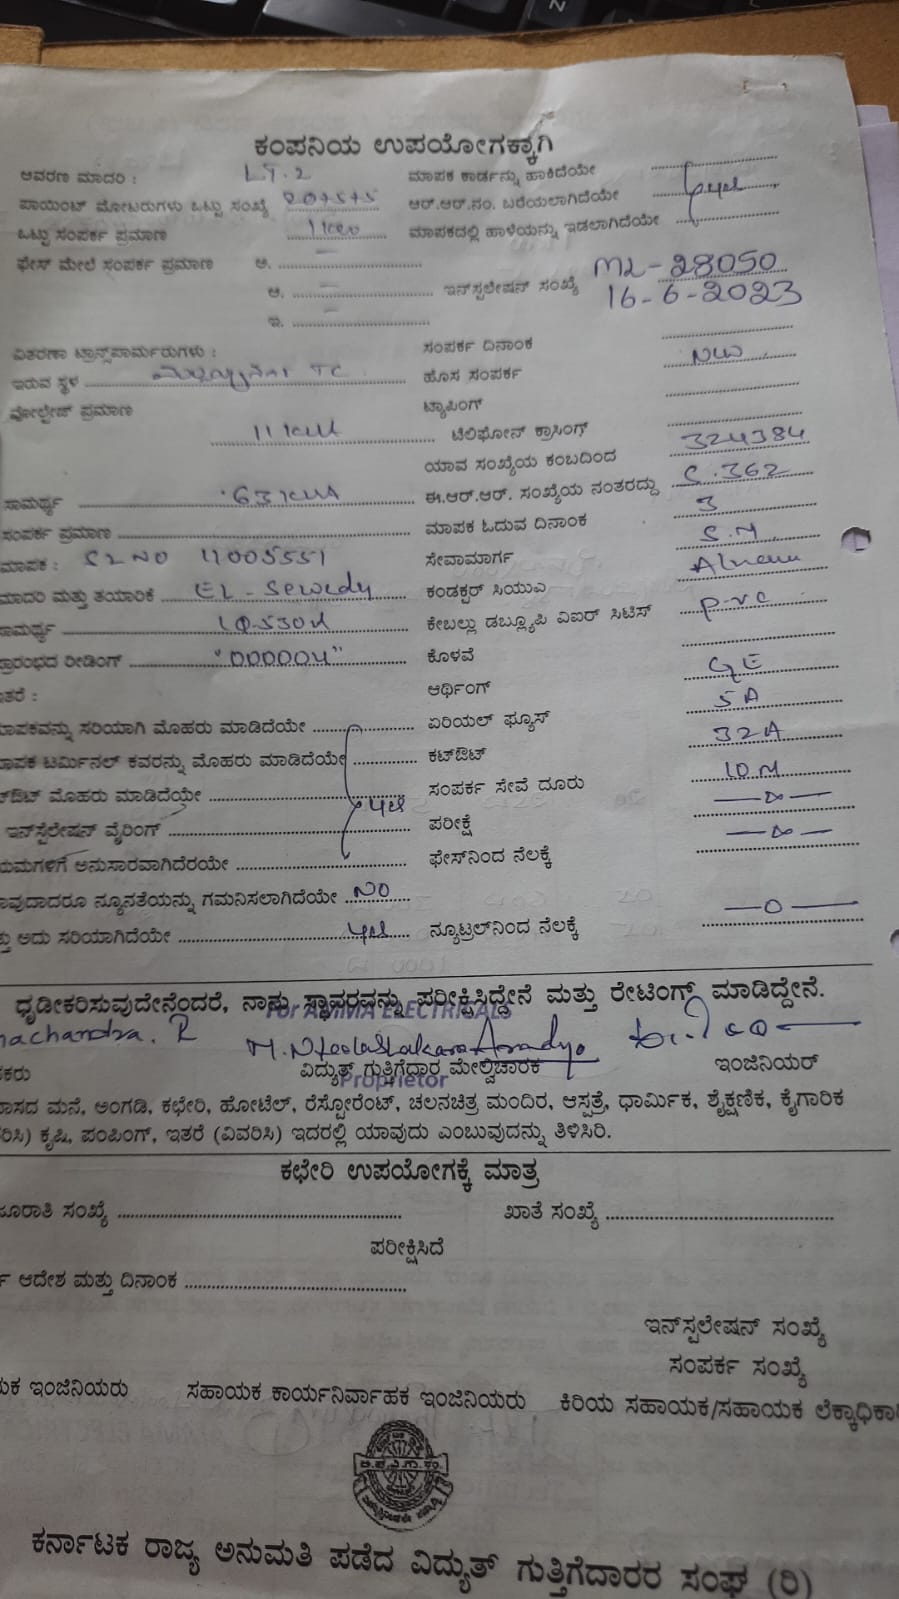 ಕಂಪನಿಯ ಉಪಯೋಗಕ್ಕಾಗಿ
ಆವರಣ ಮಾದರಿ : LT-2 ಮಾಪಕ ಕಾರ್ಡನ್ನು ಹಾಕಿದೆಯೇ
ಪಾಯಿಂಟ್ ಮೋಟರುಗಳು ಒಟ್ಟು ಸಂಖ್ಯೆ ಆರ್.ಆರ್.ನಂ. ಬರೆಯಲಾಗಿದೆಯೇ yes
ಒಟ್ಟು ಸಂಪರ್ಕ ಪ್ರಮಾಣ ಮಾಪಕದಲ್ಲಿ ಹಾಳೆಯನ್ನು ಇಡಲಾಗಿದೆಯೇ
ಫೇಸ್ ಮೇಲೆ ಸಂಪರ್ಕ ಪ್ರಮಾಣ ಅ.
ಆ. ಇನ್‌ಸ್ಟಲೇಷನ್ ಸಂಖ್ಯೆ ML-28050
16-6-2023
ಇ.
ವಿತರಣಾ ಟ್ರಾನ್ಸ್‌ಫಾರ್ಮರುಗಳು : ಸಂಪರ್ಕ ದಿನಾಂಕ
ಇರುವ ಸ್ಥಳ TC ಹೊಸ ಸಂಪರ್ಕ New
ವೋಲ್ಟೇಜ್ ಪ್ರಮಾಣ ಟ್ಯಾಪಿಂಗ್
ಟೆಲಿಫೋನ್ ಕ್ರಾಸಿಂಗ್
ಯಾವ ಸಂಖ್ಯೆಯ ಕಂಬದಿಂದ 324384
ಸಾಮರ್ಥ್ಯ 63 KVA ಈ.ಆರ್.ಆರ್. ಸಂಖ್ಯೆಯ ನಂತರದ್ದು S.362
ಸಂಪರ್ಕ ಪ್ರಮಾಣ ಮಾಪಕ ಓದುವ ದಿನಾಂಕ 3
ಮಾಪಕ : SL NO 11005551 ಸೇವಾಮಾರ್ಗ S.M
ಮಾದರಿ ಮತ್ತು ತಯಾರಿಕೆ EL-Sewedy ಕಂಡಕ್ಟರ್ ಸಿಯುಎ
ಸಾಮರ್ಥ್ಯ ಕೇಬಲ್ಲು ಡಬ್ಲ್ಯೂಪಿ ವಿಐಆರ್ ಸಿಟಿಸ್ P-VC
ಪ್ರಾರಂಭದ ರೀಡಿಂಗ್ ಕೊಳವೆ
ಇತರೆ : ಆರ್ಥಿಂಗ್ GE
ಮಾಪಕವನ್ನು ಸರಿಯಾಗಿ ಮೊಹರು ಮಾಡಿದೆಯೇ ಏರಿಯಲ್ ಫ್ಯೂಸ್ 5A
ಮಾಪಕ ಟರ್ಮಿನಲ್ ಕವರನ್ನು ಮೊಹರು ಮಾಡಿದೆಯೇ ಕಟ್‌ಔಟ್ 32A
ಕಟ್‌ಔಟ್ ಮೊಹರು ಮಾಡಿದೆಯೇ yes ಸಂಪರ್ಕ ಸೇವೆ ದೂರು 10 M
ಇನ್‌ಸ್ಟಲೇಷನ್ ವೈರಿಂಗ್ ಪರೀಕ್ಷೆ
ನಿಯಮಗಳಿಗೆ ಅನುಸಾರವಾಗಿದೆರಯೇ ಫೇಸ್‌ನಿಂದ ನೆಲಕ್ಕೆ
ಯಾವುದಾದರೂ ನ್ಯೂನತೆಯನ್ನು ಗಮನಿಸಲಾಗಿದೆಯೇ NO
ಮತ್ತು ಅದು ಸರಿಯಾಗಿದೆಯೇ yes ನ್ಯೂಟ್ರಲ್‌ನಿಂದ ನೆಲಕ್ಕೆ
ಧೃಡೀಕರಿಸುವುದೇನೆಂದರೆ, ನಾನು ಸ್ಥಾವರವನ್ನು ಪರೀಕ್ಷಿಸಿದ್ದೇನೆ ಮತ್ತು ರೇಟಿಂಗ್ ಮಾಡಿದ್ದೇನೆ.
For AMMA ELECTRICALS
machandra. R
ವಿದ್ಯುತ್ ಗುತ್ತಿಗೆದಾರ ಮೇಲ್ವಿಚಾರಕ ಇಂಜಿನಿಯರ್
Proprietor
ವಾಸದ ಮನೆ, ಅಂಗಡಿ, ಕಛೇರಿ, ಹೋಟೆಲ್, ರೆಸ್ಟೋರೆಂಟ್, ಚಲನಚಿತ್ರ ಮಂದಿರ, ಆಸ್ಪತ್ರೆ, ಧಾರ್ಮಿಕ, ಶೈಕ್ಷಣಿಕ, ಕೈಗಾರಿಕ
ಕೃಷಿ, ಪಂಪಿಂಗ್, ಇತರೆ (ವಿವರಿಸಿ) ಇದರಲ್ಲಿ ಯಾವುದು ಎಂಬುವುದನ್ನು ತಿಳಿಸಿರಿ.
ಕಛೇರಿ ಉಪಯೋಗಕ್ಕೆ ಮಾತ್ರ
ಸಂಖ್ಯೆ ಖಾತೆ ಸಂಖ್ಯೆ
ಪರೀಕ್ಷಿಸಿದೆ
ಆದೇಶ ಮತ್ತು ದಿನಾಂಕ
ಇನ್‌ಸ್ಟಲೇಷನ್ ಸಂಖ್ಯೆ
ಸಂಪರ್ಕ ಸಂಖ್ಯೆ
ಇಂಜಿನಿಯರು ಸಹಾಯಕ ಕಾರ್ಯನಿರ್ವಾಹಕ ಇಂಜಿನಿಯರು ಕಿರಿಯ ಸಹಾಯಕ/ಸಹಾಯಕ ಲೆಕ್ಕಾಧಿಕಾರಿ
ಕರ್ನಾಟಕ ರಾಜ್ಯ ಅನುಮತಿ ಪಡೆದ ವಿದ್ಯುತ್ ಗುತ್ತಿಗೆದಾರರ ಸಂಘ (ರಿ)